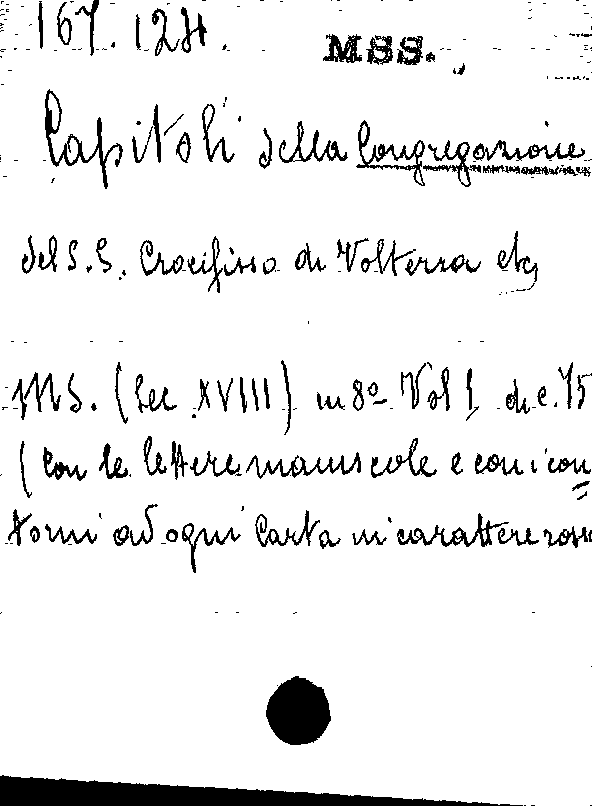 167.124.
MSS.
Capitoli della Congregazione
del S.S. Crocifisso di Volterra etc
MS. (Sec. XVIII) in 8º Vol 1 di c. 75
(con le lettere maiuscole e con i con
torni ad ogni Carta in carattere rosso